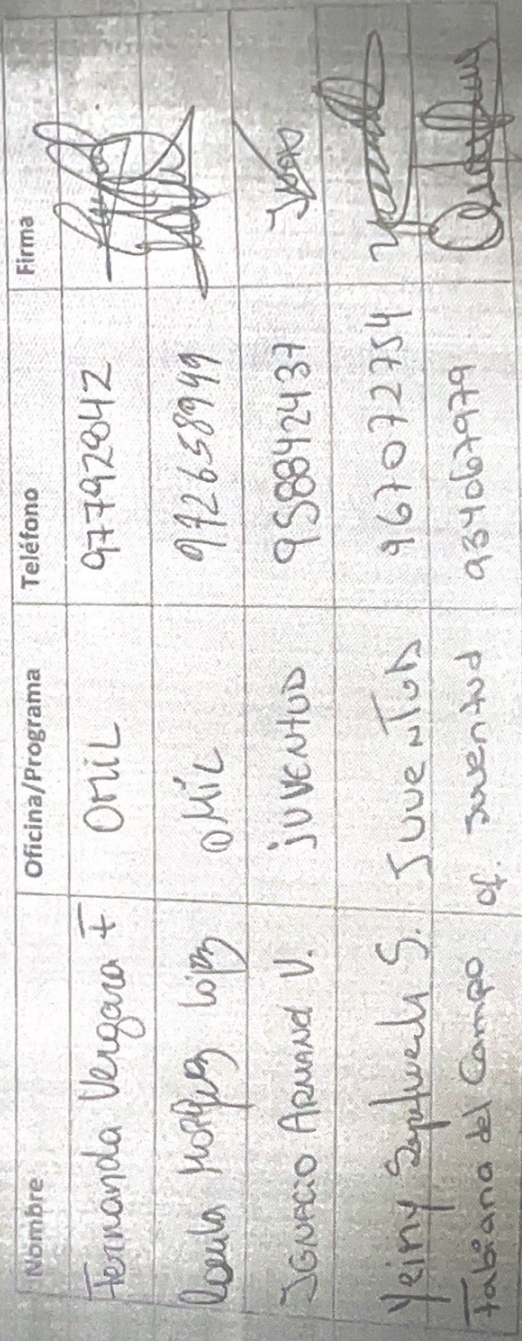 Nombre Oficina/Programa Teléfono Firma
Fernanda Vergara F OMIL 97792842
López OMIL 972658949
IGNACIO ARMAND V. JUVENTUD 958842437
Yeiny Sepulveda S. JUVENTUD 967072754
Fabiana del Campo of. Juventud 934067979